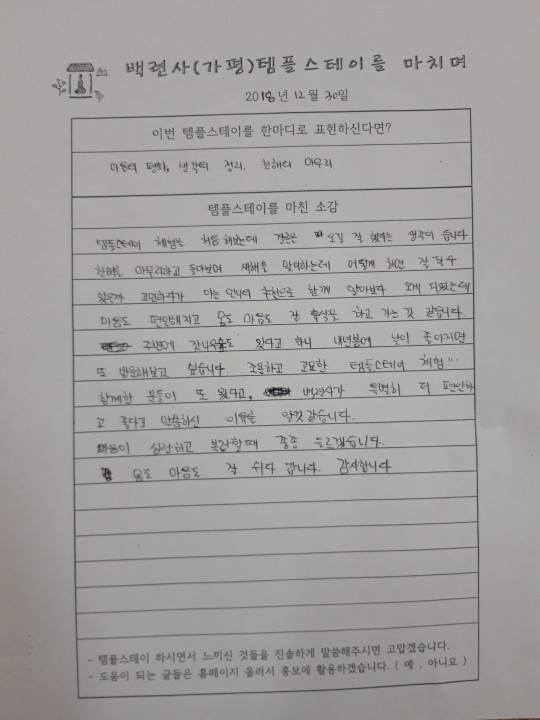 백련사(가평)템플스테이를 마치며
2018년 12월 30일
이번 템플스테이를 한마디로 표현하신다면?
마음의 평화, 생각의 정리. 한해의 마무리
템플스테이를 마친 소감
템플스테이 체험은 처음 해봤는데 결론은 오길 잘 했다는 생각이 듭니다.
한해를 마무리하고 돌아보며 새해를 맞이하는데 어떻게 하면 잘 할 수
있을까 고민하다가 아는 언니의 추천으로 함께 알아보다 오게 되었는데
마음도 편안해지고 몸도 마음도 잘 휴식을 하고 가는 것 같습니다.
주변에 잣나무숲도 있다고 하니 내년봄에 날이 좋아지면
또 방문해보고 싶습니다. 조용하고 고요한 템플스테이 체험!!!
함께한 분들이 또 왔다고, 백련사가 특별히 더 편안하
고 좋다고 말씀하신 이유를 알것 같습니다.
마음이 심란하고 복잡할때 종종 들르겠습니다.
몸도 마음도 잘 쉬다 갑니다. 감사합니다
- 템플스테이 하시면서 느끼신 것들을 진솔하게 말씀해주시면 고맙겠습니다.
- 도움이 되는 글들은 홈페이지 올려서 홍보에 활용하겠습니다. ( 예 , 아니요 )